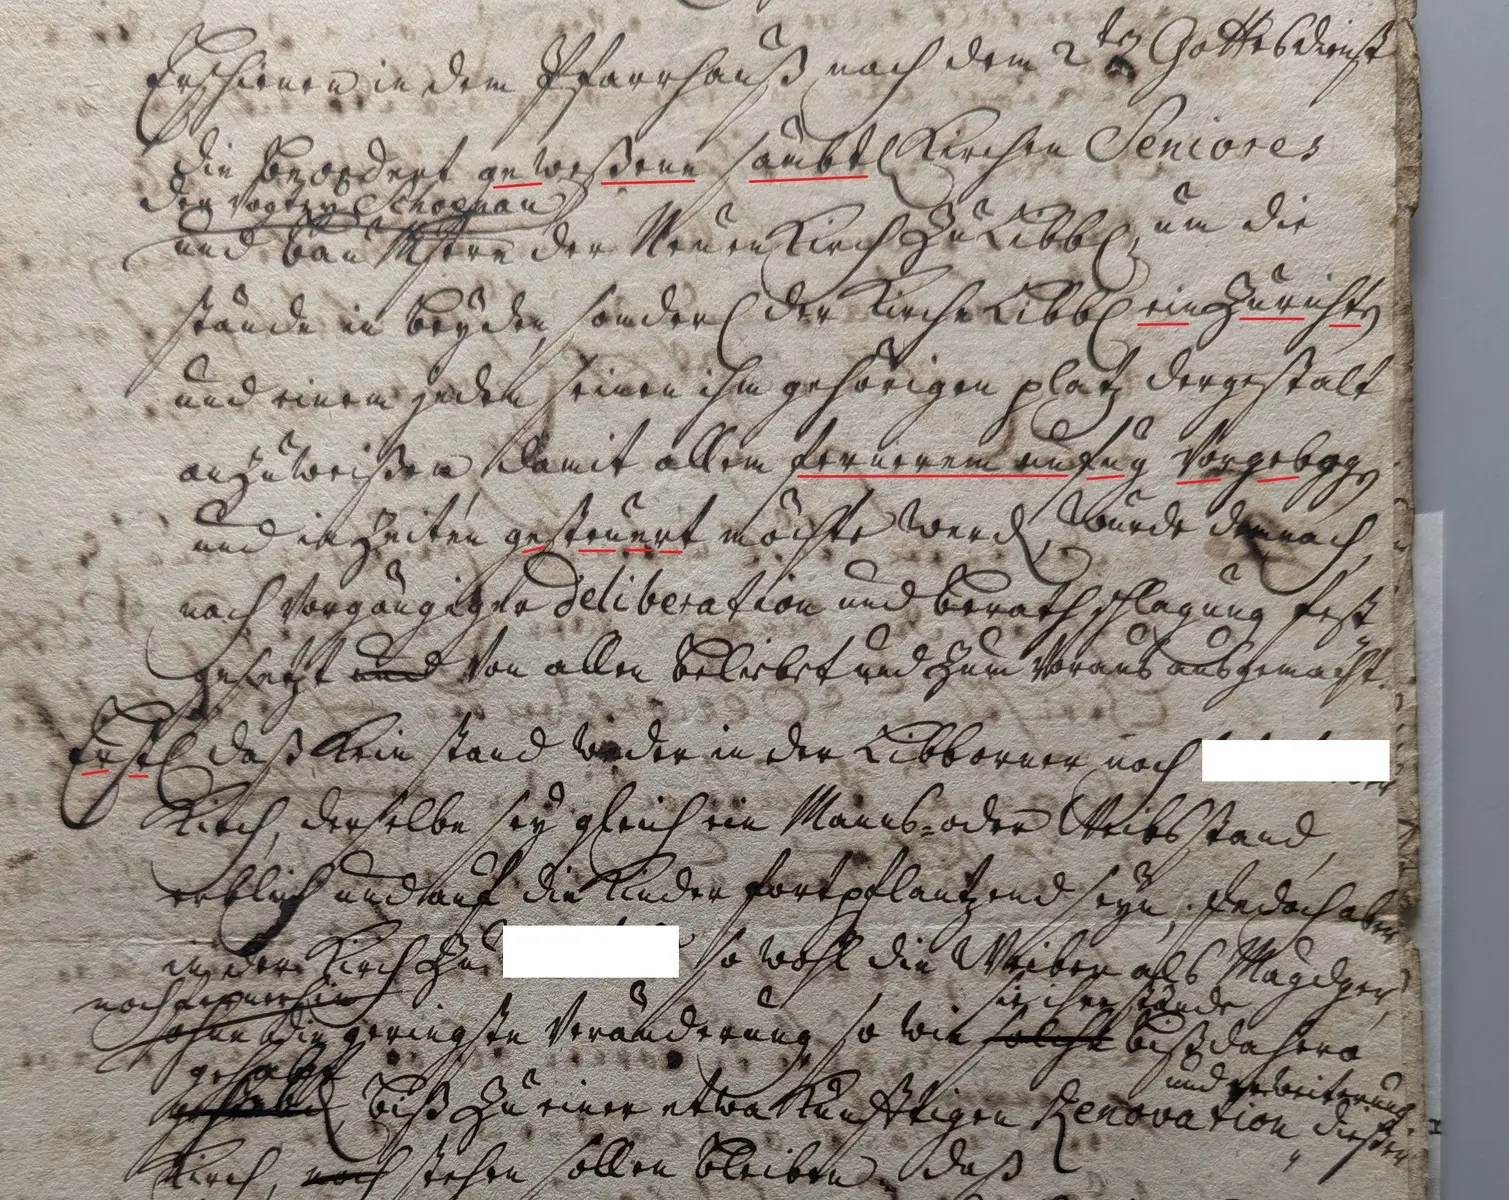 Erschienen in dem Pfarrhauß nach dem 2ten Gottesdienst
die beordert geweßene sämbtl Kirchen Seniores
der Vogtey Schopnau
und bau Mstere der Neuen Kirch zu Libb, um die
stände in beyden, sonderl der Kirche Libb einzurichten
und einem jeden seinen ihm gehörigen platz dergestalt
anzuweißen damit allem fernerem unfug Vorgebogen
und in Zeiten gesteuert möchte werden, wurde demnach,
nach Vorgängiger Deliberation und berathschlagung fest
gesetzt und Von allen beliebet und zum Voraus ausgemacht.
Erstl daß kein stand weder in der Libborner noch
Kirch, derselbe sey gleich ein Manns- oder Weibsstand,
erblich und auf die Kinder fortpflantzend seyn, Jedoch aber
in der Kirch zu so wohl die Weiber als Mägdger,
noch fernerhin sie ihre stände
ohne die geringste Veränderung so wie solche bißdahero
gehabt und erweiterung
biß zu einer etwa künfftigen Renovation dießer
Kirch, noch stehen sollen bleiben daß